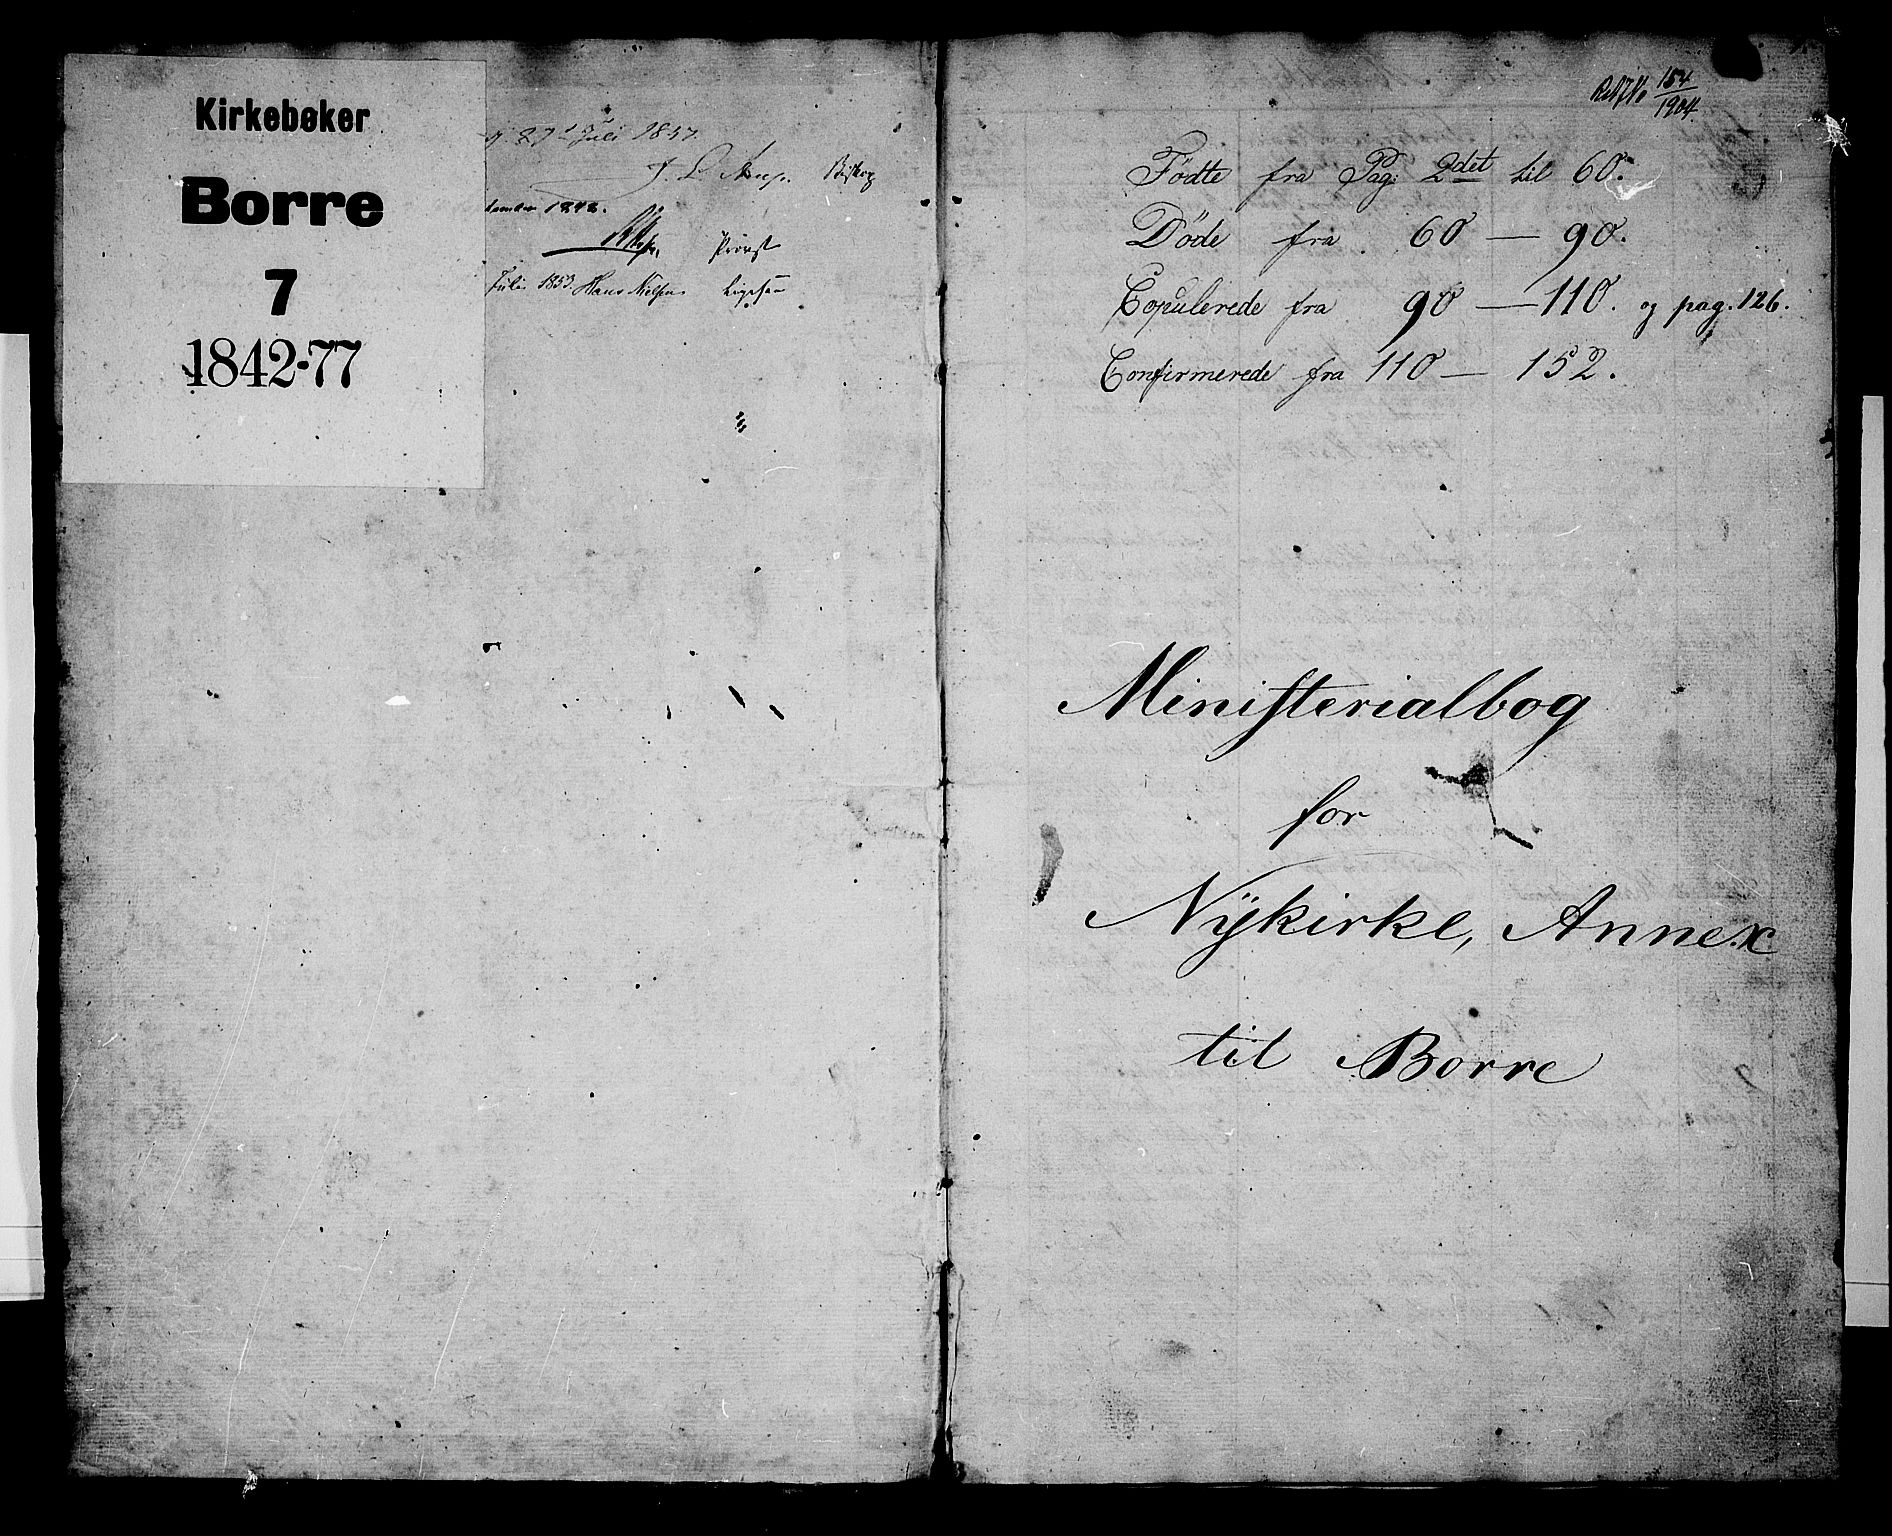 Kirkebøker
Borre
7
1842-77
27 Juli 1857.
Biskop
1848.
Provst
Juli 1853. Hans Nielsen
154
1904.
Fødte fra Pag: 2det til 60.
Døde fra 60 — 90.
Copulerede fra 90 — 110. og pag. 126.
Confirmerede fra 110 — 152.
Ministerialbog
for
Nÿkirke, Annex
til Borre